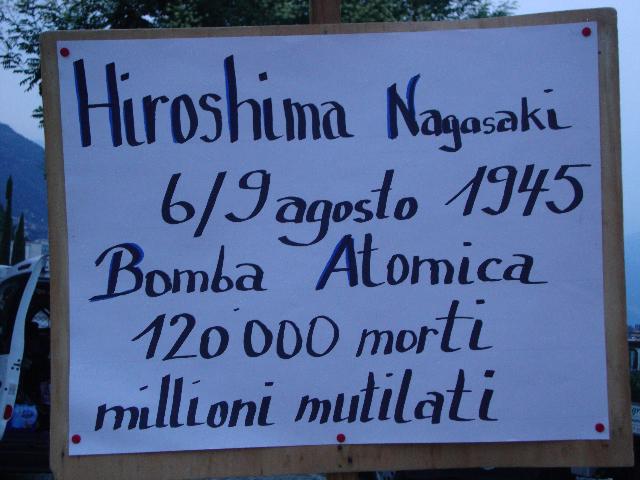 Hiroshima Nagasaki
6/9 agosto 1945
Bomba Atomica
120'000 morti
millioni mutilati